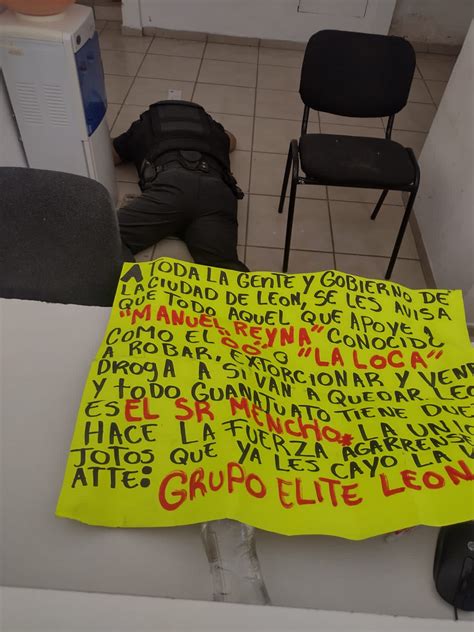 A TODA LA GENTE Y GOBIERNO DE
LA CIUDAD DE LEON, SE LES AVISA
QUE TODO AQUEL QUE APOYE
"MANUEL REYNA" CONOCID
COMO EL "OO" O "LA LOCA"
A ROBAR, EXTORCIONAR Y VEN
DROGA A SI VAN A QUEDAR. LEO
Y TODO GUANAJUATO TIENE DUE
ES EL SR MENCHO. LA UNIO
HACE LA FUERZA AGARRENS
JOTOS QUE YA LES CAYO LA V
ATTE: GRUPO ELITE LEON